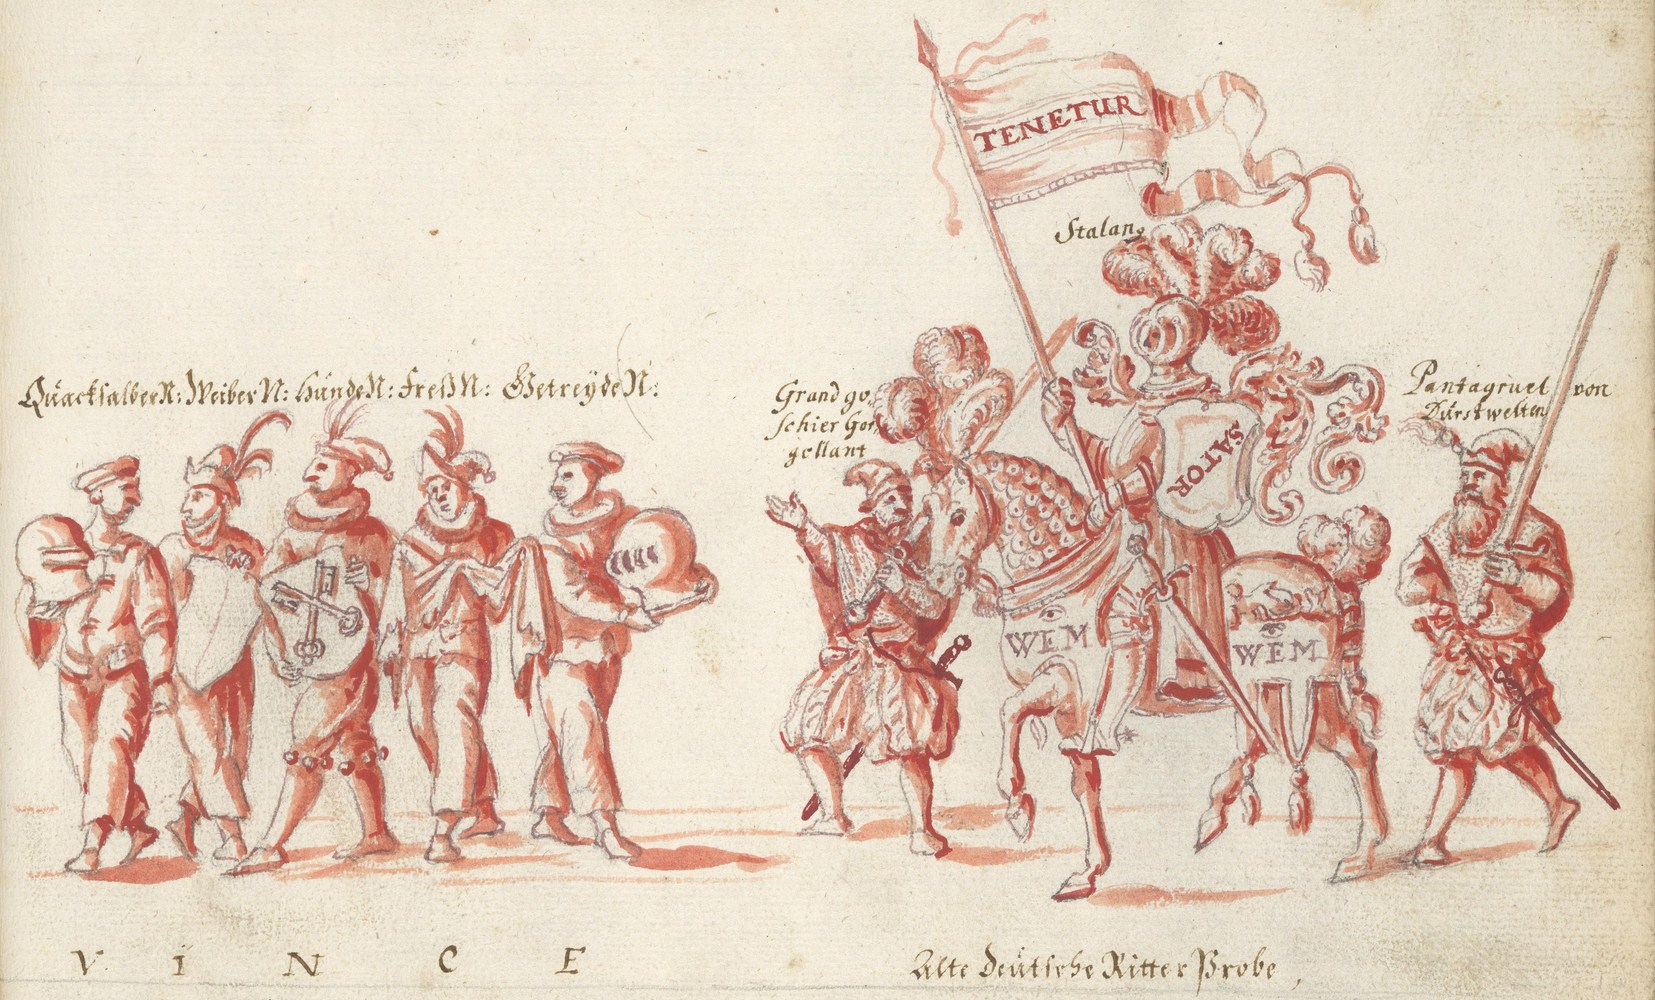 TENETUR
Stalang
QuacksalbeR: WeiberN: HündeN: freßN: GetreydeN:
Grandgo,
schier Gor,
gellant
SATOR
Pantagruel von
Dürstwelten
WEM WEM
V I N C E
Alte deütsche Ritter Probe,